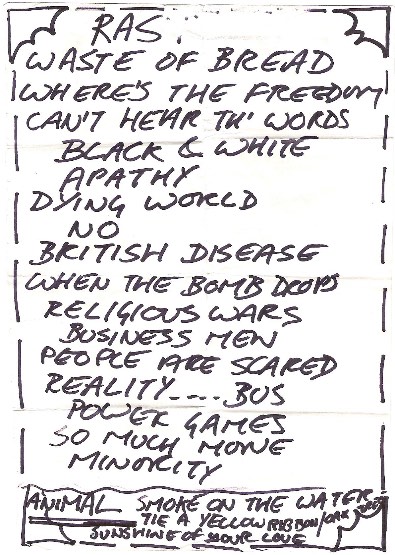 RAS
WASTE OF BREAD
WHERE'S THE FREEDOM
CAN'T HEAR TH' WORDS
BLACK & WHITE
APATHY
DYING WORLD
NO
BRITISH DISEASE
WHEN THE BOMB DROPS
RELIGIOUS WARS
BUSINESS MEN
PEOPLE ARE SCARED
REALITY.... BUS
POWER GAMES
SO MUCH MONE
MINORITY
ANIMAL SMOKE ON THE WATER
TIE A YELLOW RIBBON/OAK TREE
SUNSHINE OF YOUR LOVE